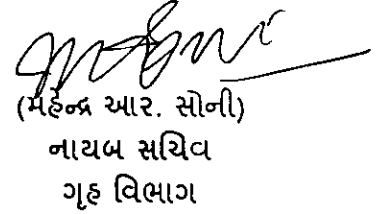 (મહેન્દ્ર આર. સોની)
નાયબ સચિવ
ગૃહ વિભાગ